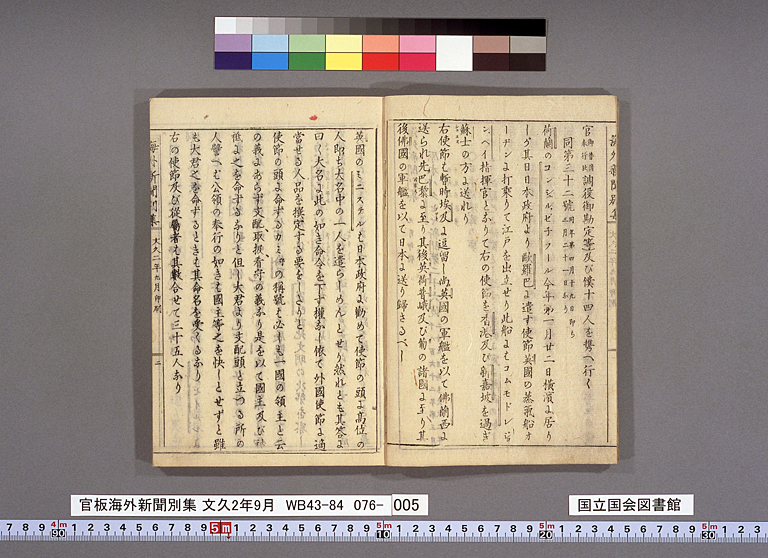 官御普請奉行格調役御勘定等及び僕十四人を携へ行く
同第三十二號
荷蘭のコンシュルゼ子ラール今年第一月廿二日横濱に居り
其日日本政府より歐羅巴に遣す使節英國の蒸氣船
に打乗りて江戸を出立せり此船はコムモドレ
指揮官となりて右の使節を香港及び新嘉坡を過ぎ
蘇士の方に送れり
右使節も暫時埃及に逗留し尚英國の軍艦を以て佛蘭西に
送られ先巴黎に至り其後英荷普峨及び葡の諸國に至り其
後佛國の軍艦を以て日本に送り歸さるべし
英國のミニステルも日本政府に勸めて使節の頭に高位の
人即ち大名中の一人を遣らしめんとせり然れとも其答に
曰く大名に此の如き命令を下す權なし依て外國使節に適
當せる人品を撰定する要をしさりと
使節の頭に命するかミの稱號も必しも一國の領主と云
の義にあらす支配取扱看守の義なり是を以て國主及び
低よ之を命するなりと但し大君より支配頭と立つる所の
人譬へむ公領の奉行の如きも國主等之を快しとせずと雖
も大君之を命するときも其命名を受くるなり
右の使節及び從屬者も其數合せて三十五人なり
海外新聞別集 文久二年九月印刻 二
官板海外新聞別集 文久2年9月 WB43-84 076-005
国立国会図書館